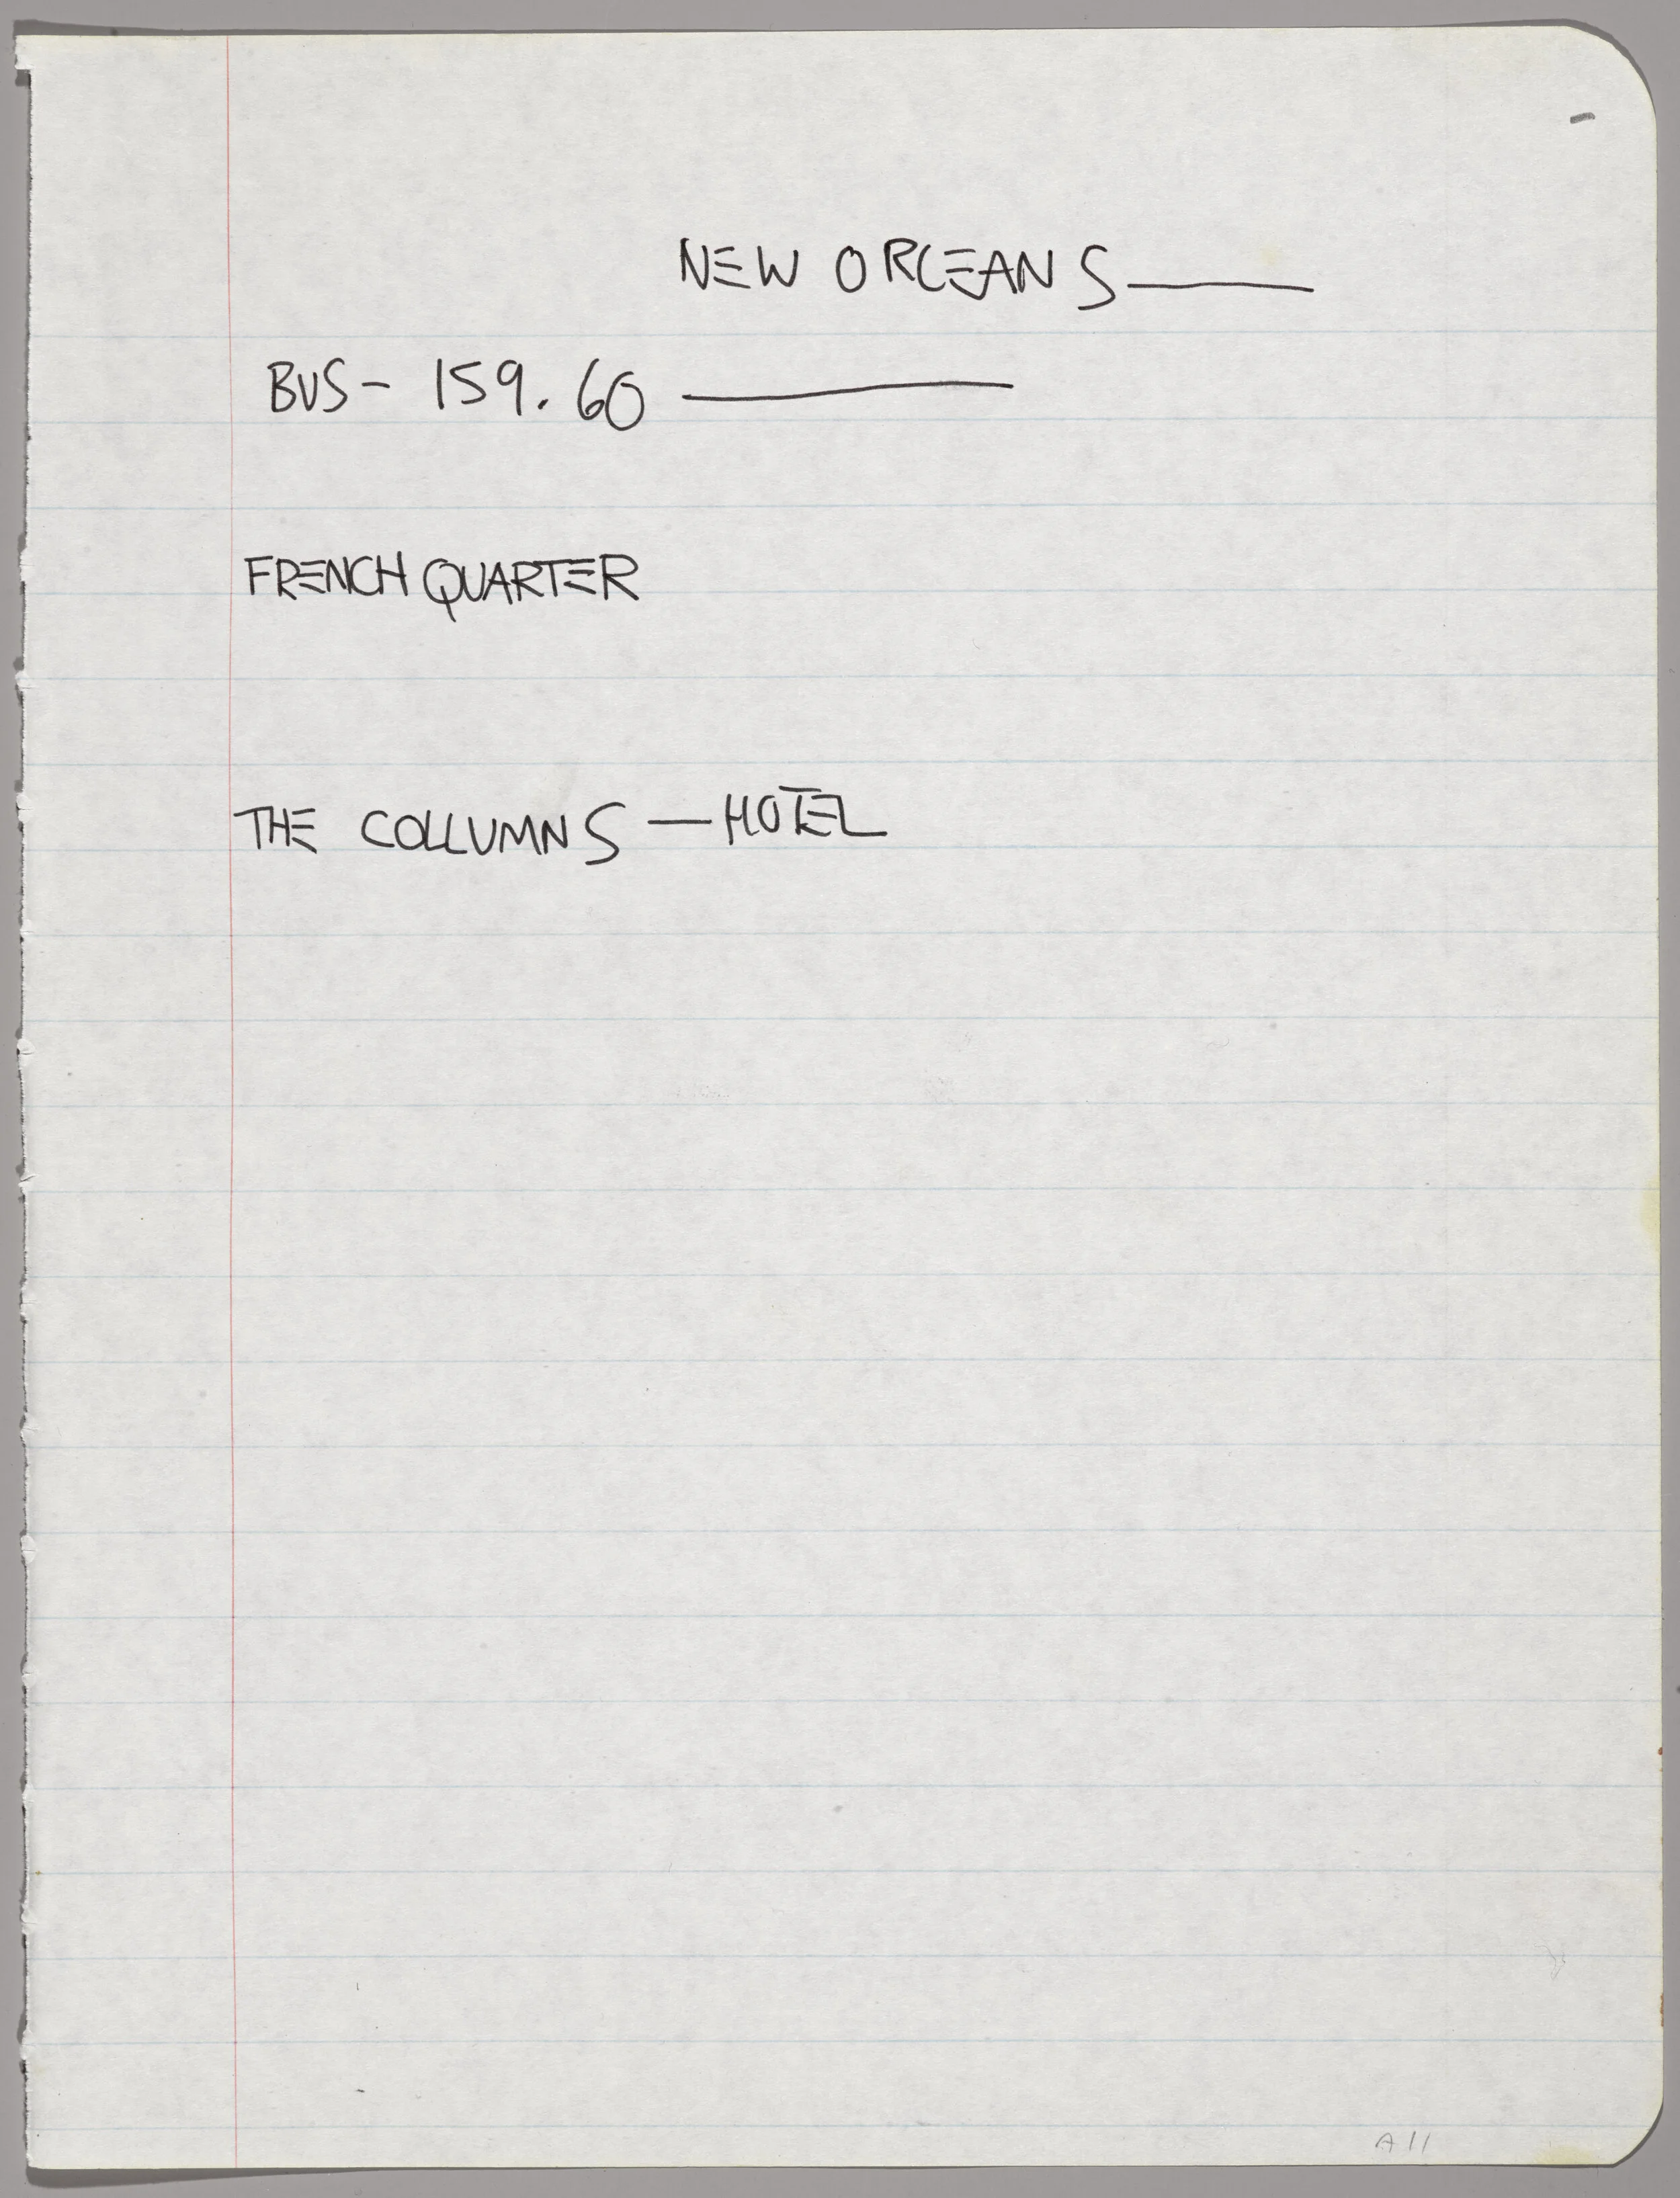 NEW ORLEANS——
BUS- 159.60 ———
FRENCH QUARTER
THE COLLUMNS —HOTEL
A11